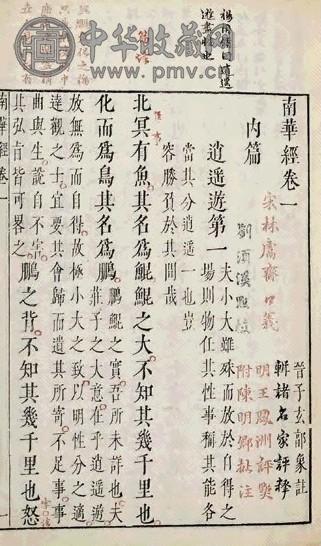 中华收藏网
www.pmv.com
南華經卷一
晉子玄郭象註
輯諸名家評釋
宋林鬳齋口義
明王鳳洲評點
附陳明卿批注
劉須溪點校
內篇
逍遙遊第一
夫小大雖殊而放於自得之
場則物任其性事稱其能各
當其分逍遙一也豈
容勝負於其間哉
北冥有魚其名爲鯤鯤之大不知其幾千里也
化而爲鳥其名爲鵬
鵬鯤之實吾所未詳也夫
莊子之大意在乎逍遙遊
放無爲而自得故極小大之致以明性分之適
達觀之士宜要其會歸而遺其所寄不足事事
曲與生說自不害
其弘旨皆可略之
鵬之背不知其幾千里也怒
南華經卷一